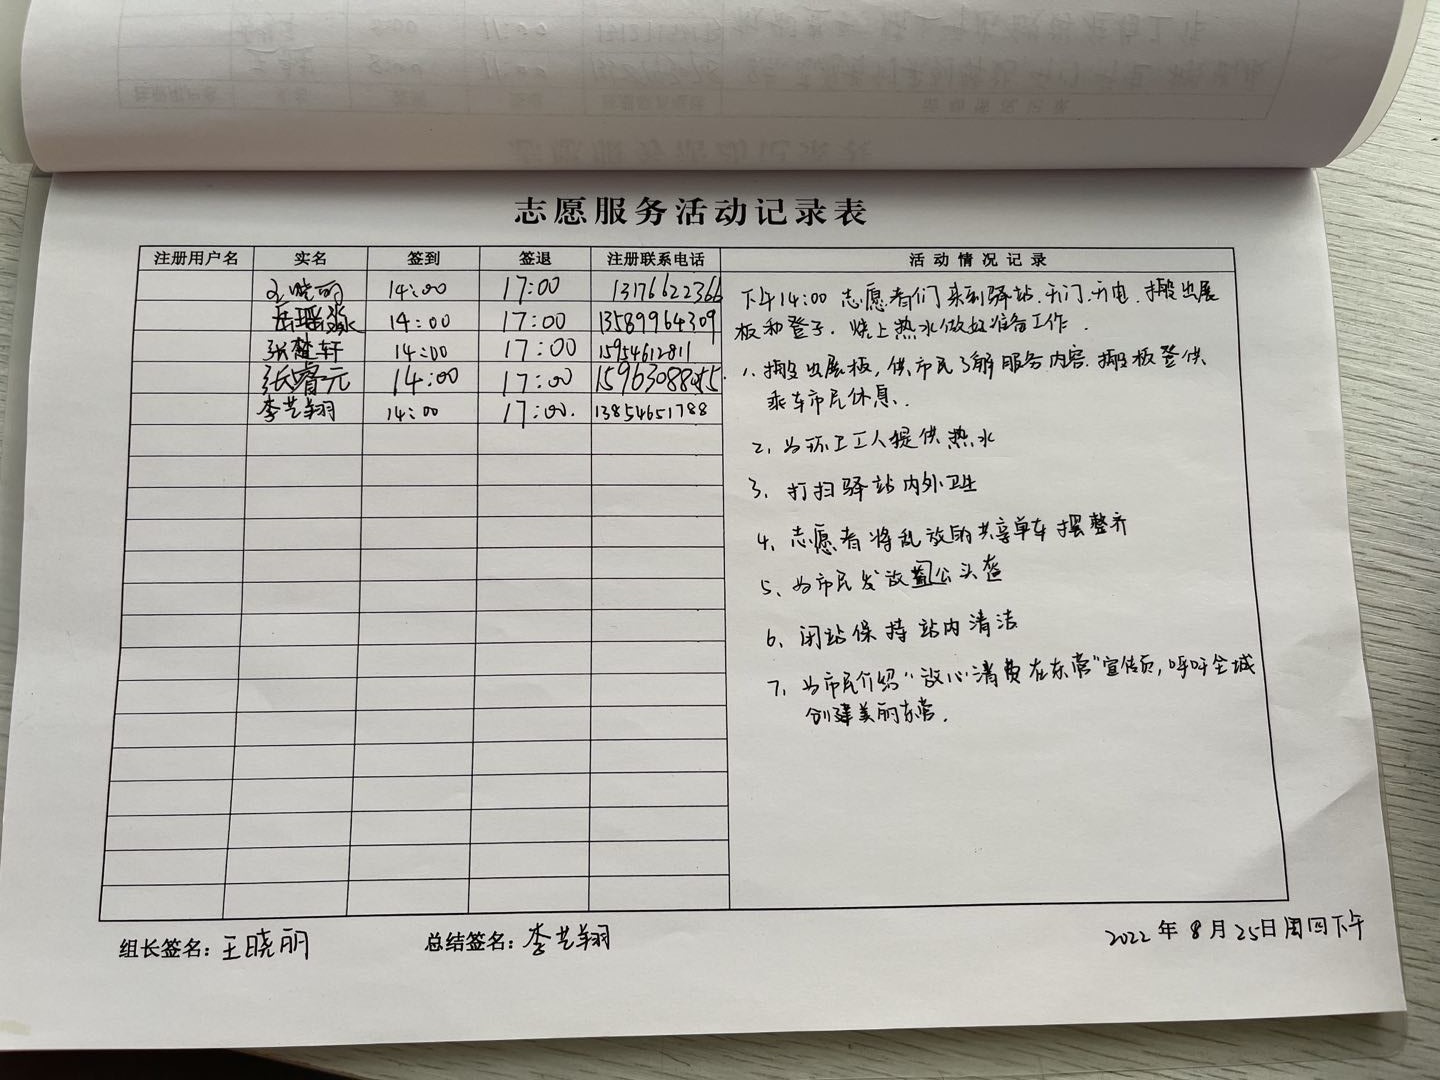 志愿服务活动记录表
注册用户名 实名 签到 签退 注册联系电话 活动情况记录
王晓丽 14:00 17:00 13176622366
14:00 17:00 13589964309
张楚轩 14:00 17:00 15954612811
张睿元 14:00 17:00
李艺翔 14:00 17:00. 13854651788
下午14:00 志愿者们来到驿站.开门.开电.搬出展
板和登子.烧上热水做好准备工作.
1、搬出展板,供市民了解服务内容.搬板登供
乘车市民休息.
2、为环卫工人提供热水
3、打扫驿站内外卫生
4、志愿者将乱放的共享单车摆整齐
5、为市民发放公头盔
6、闭站保持站内清洁
7、为市民介绍“放心消费在东营”宣传页,呼吁全城
创建美丽东营.
组长签名:王晓丽 总结签名:李艺翔 2022年8月25日周四下午